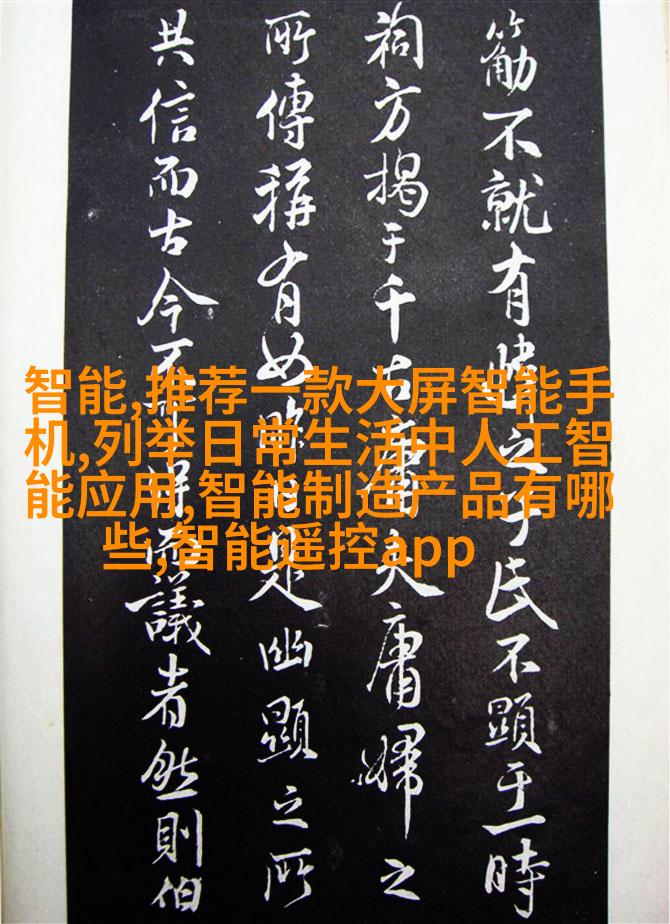 不就有之于氏不顯于一時
祠方揭于千古庸夫庸婦之
所傳稱有如昨日是幽顯之所
共信而古今不得而議者然則伯
智能,推荐一款大屏智能手
机,列举日常生活中人工智
能应用,智能制造产品有哪
些,智能遥控app